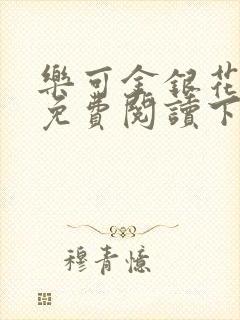 樂可金銀花
免費閱讀下
穆青憶